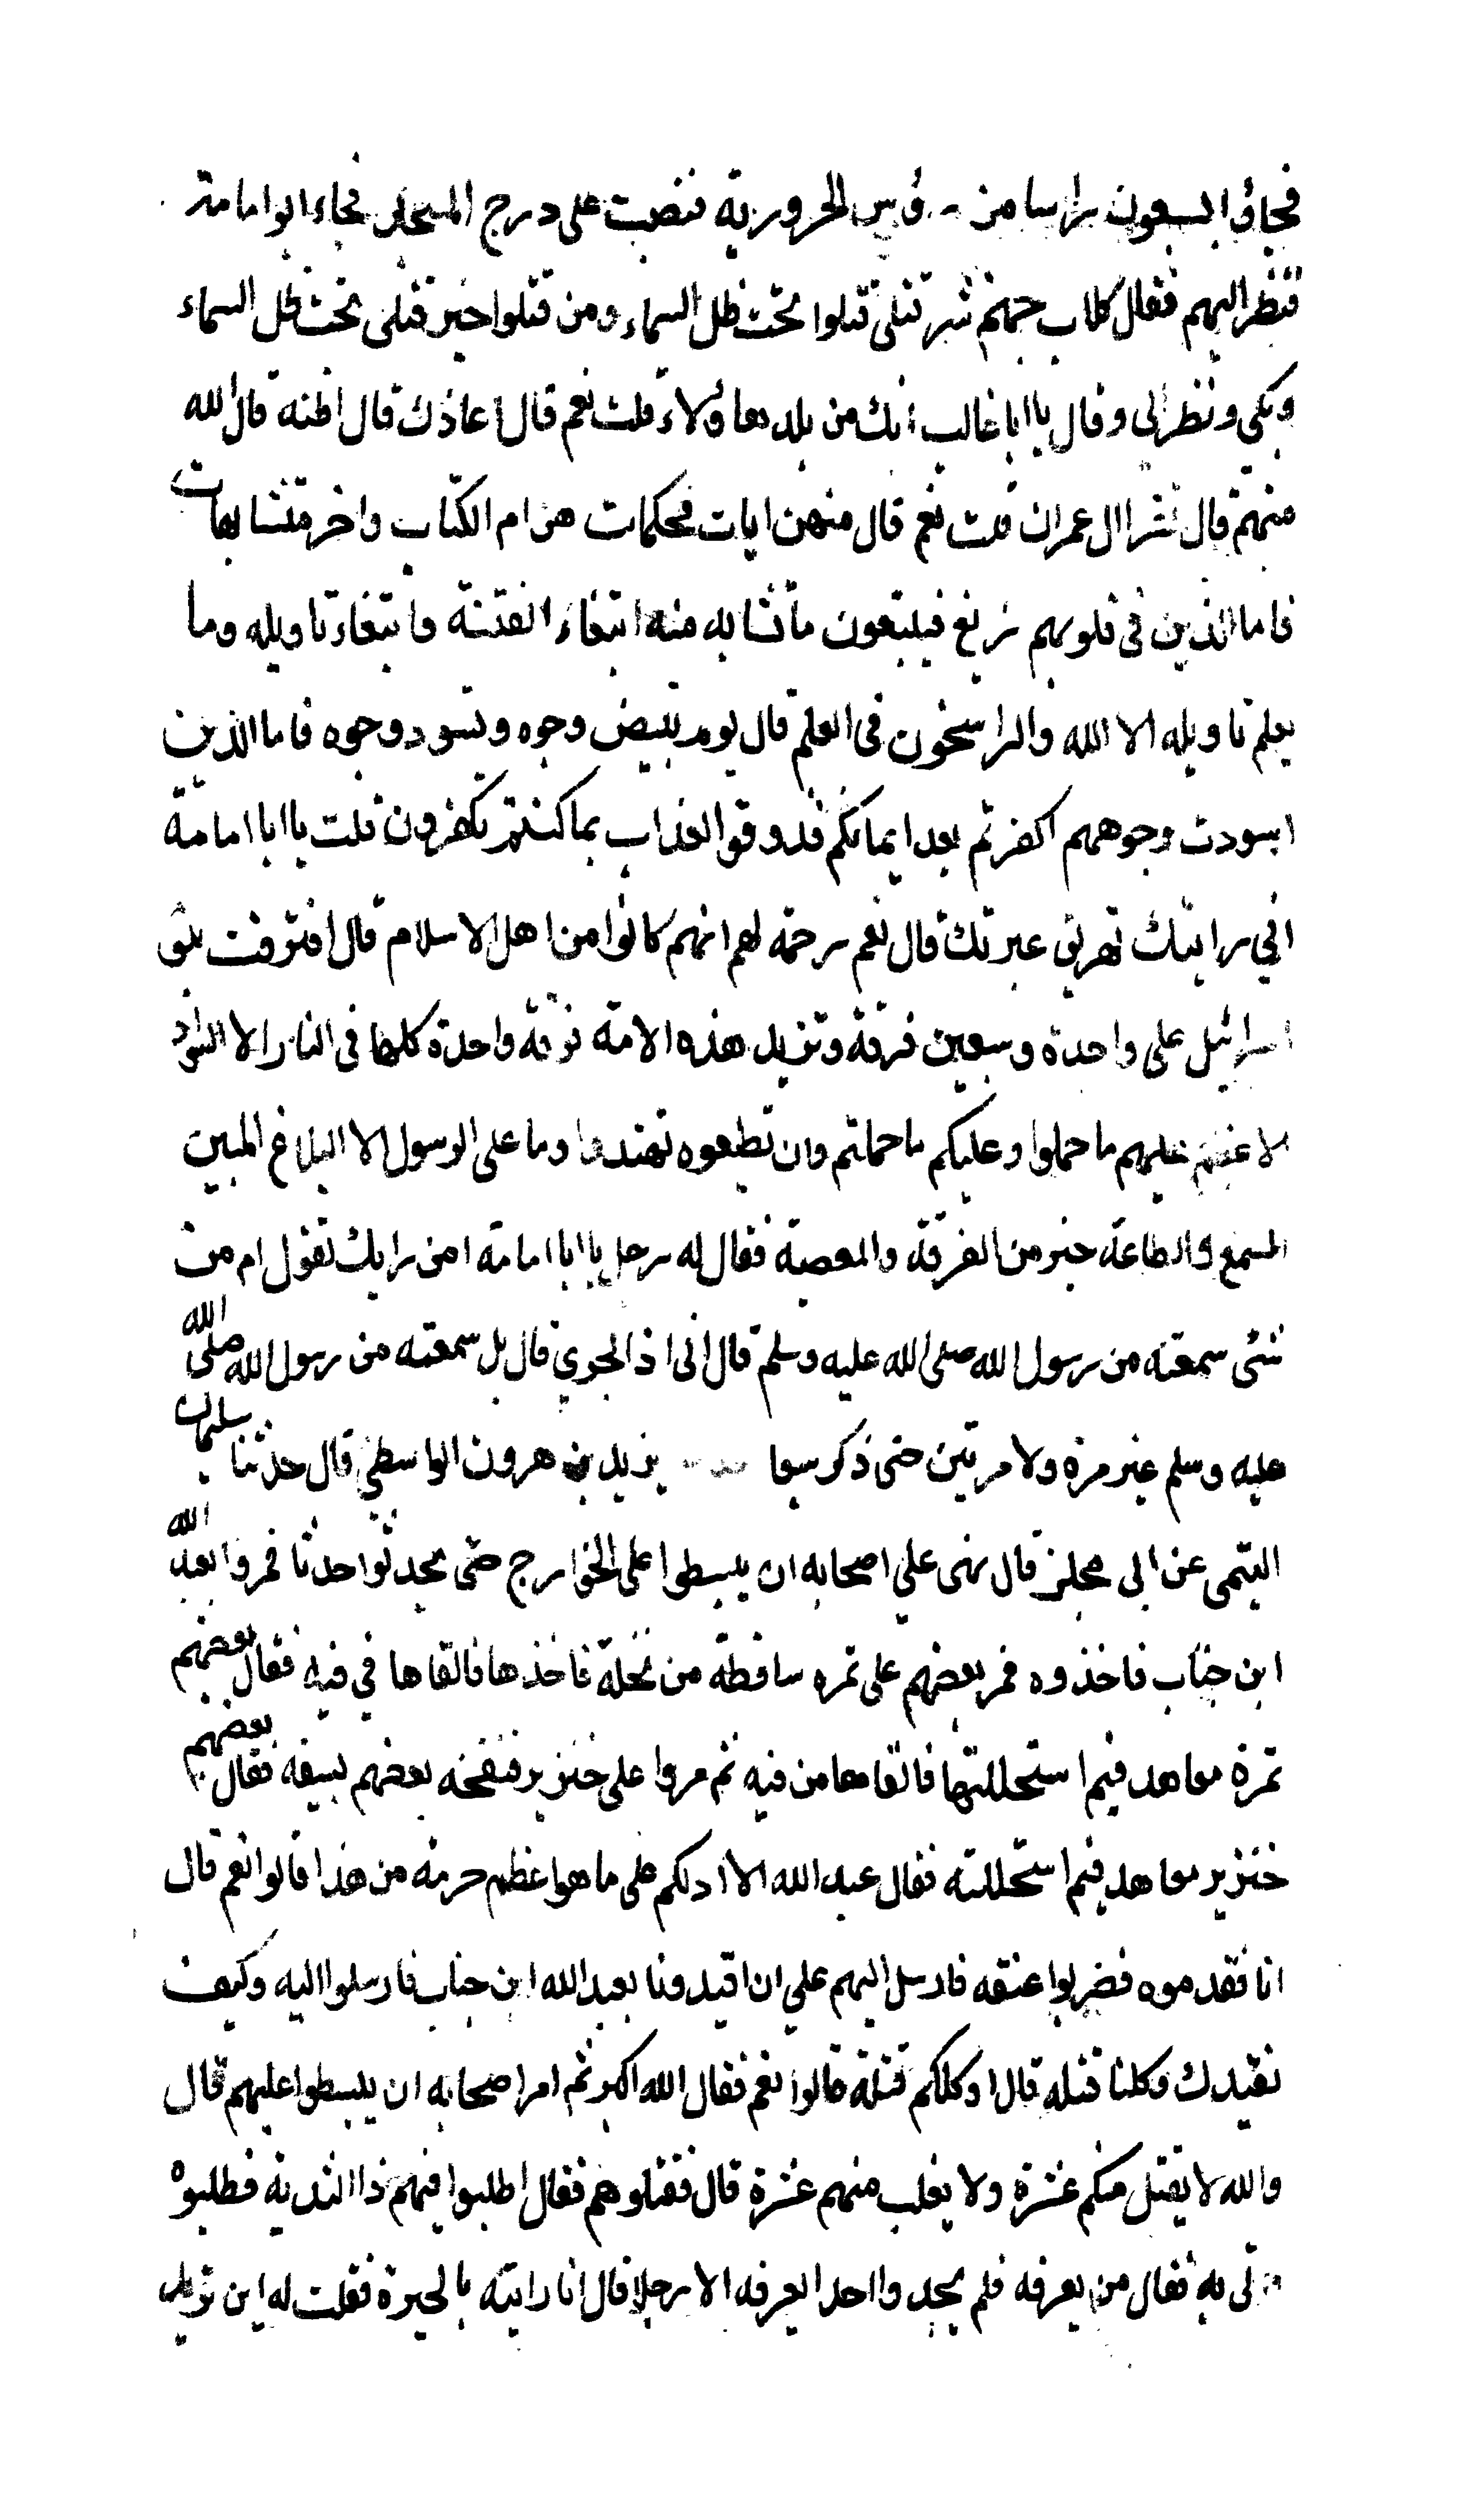 فجاؤا بسبعون راسا من رؤس الحرورية فنصبت على درج المسجد فجاء ابوا مامة
فنظر اليهم فقال كلاب جهنم شر قتلى قتلوا تحت ظل السماء ومن قتلوا خير قتلى تحت ظل السماء
وبكى ونظر الى وقال يا ابا غالب انك من بلد هاؤلاء قلت نعم قال اعاذك قال اظنه قال الله
منهم قال تقرا ال عمران قلت نعم قال منهن ايات محكمات هن ام الكتاب واخر متشابهات
فاما الذين في قلوبهم زيغ فيتبعون ما تشابه منه ابتغاء الفتنة وابتغاء تاويله وما
يعلم تاويله الا الله والراسخون فى العلم قال يوم تبيض وجوه وتسود وجوه فاما الذين
اسودت وجوههم اكفرتم بعد ايمانكم فذوقوا العذاب بما كنتم تكفرون قلت يا ابا امامة
اني رايتك تهريق عبرتك قال نعم رحمة لهم انهم كانوا من اهل الاسلام قال افترقت بنو
اسرائيل على واحدة وسبعين فرقة وتزيد هذه الامة فرقة واحدة كلها فى النار الا السواد
الاعظم عليهم ما حملوا وعليكم ما حملتم وان تطيعوه تهتدوا وما على الرسول الا البلاغ المبين
السمع والطاعة خير من الفرقة والمعصية فقال له رجل يا ابا امامة امن رايك تقول ام من
شئ سمعته من رسول الله صلى الله عليه وسلم قال انى اذا لجري قال بل سمعته من رسول الله صلى الله
عليه وسلم غير مرة ولا مرتين حتى ذكر سبعا يزيد بن هرون الواسطي قال حدثنا سليمان
التيمى عن ابى مجلز قال نهى علي اصحابه ان يبسطوا على الخوارج حتى يحدثوا حدثا فمروا بعبد الله
ابن خباب فاخذوه فمر بعضهم على تمره ساقطة من نخلة فاخذها فالقاها في فيه فقال بعضهم
تمرة معاهد فبم استحللتها فالقاها من فيه ثم مروا على خنزير فنفحه بعضهم بسيفه فقال بعضهم
خنزير معاهد فبم استحللته فقال عبد الله الا ادلكم على ما هو اعظم حرمة من هذا قالوا نعم قال
انا فقدموه فضربوا عنقه فارسل اليهم علي ان اقيدونا بعبد الله ابن خباب فارسلوا اليه وكيف
نقيدك وكلنا قتله قال اوكلكم قتله قالوا نعم فقال الله اكبر ثم امر اصحابه ان يبسطوا عليهم قال
والله لا يقتل منكم عشرة ولا يفلت منهم عشرة قال فقتلوهم فقال اطلبوا فيهم ذا الثدية فطلبوه
فاتى به فقال من يعرفه فلم يجد وااحدا يعرفه الا رجلا قال انا رايته بالحيرة فقلت له اين تريد